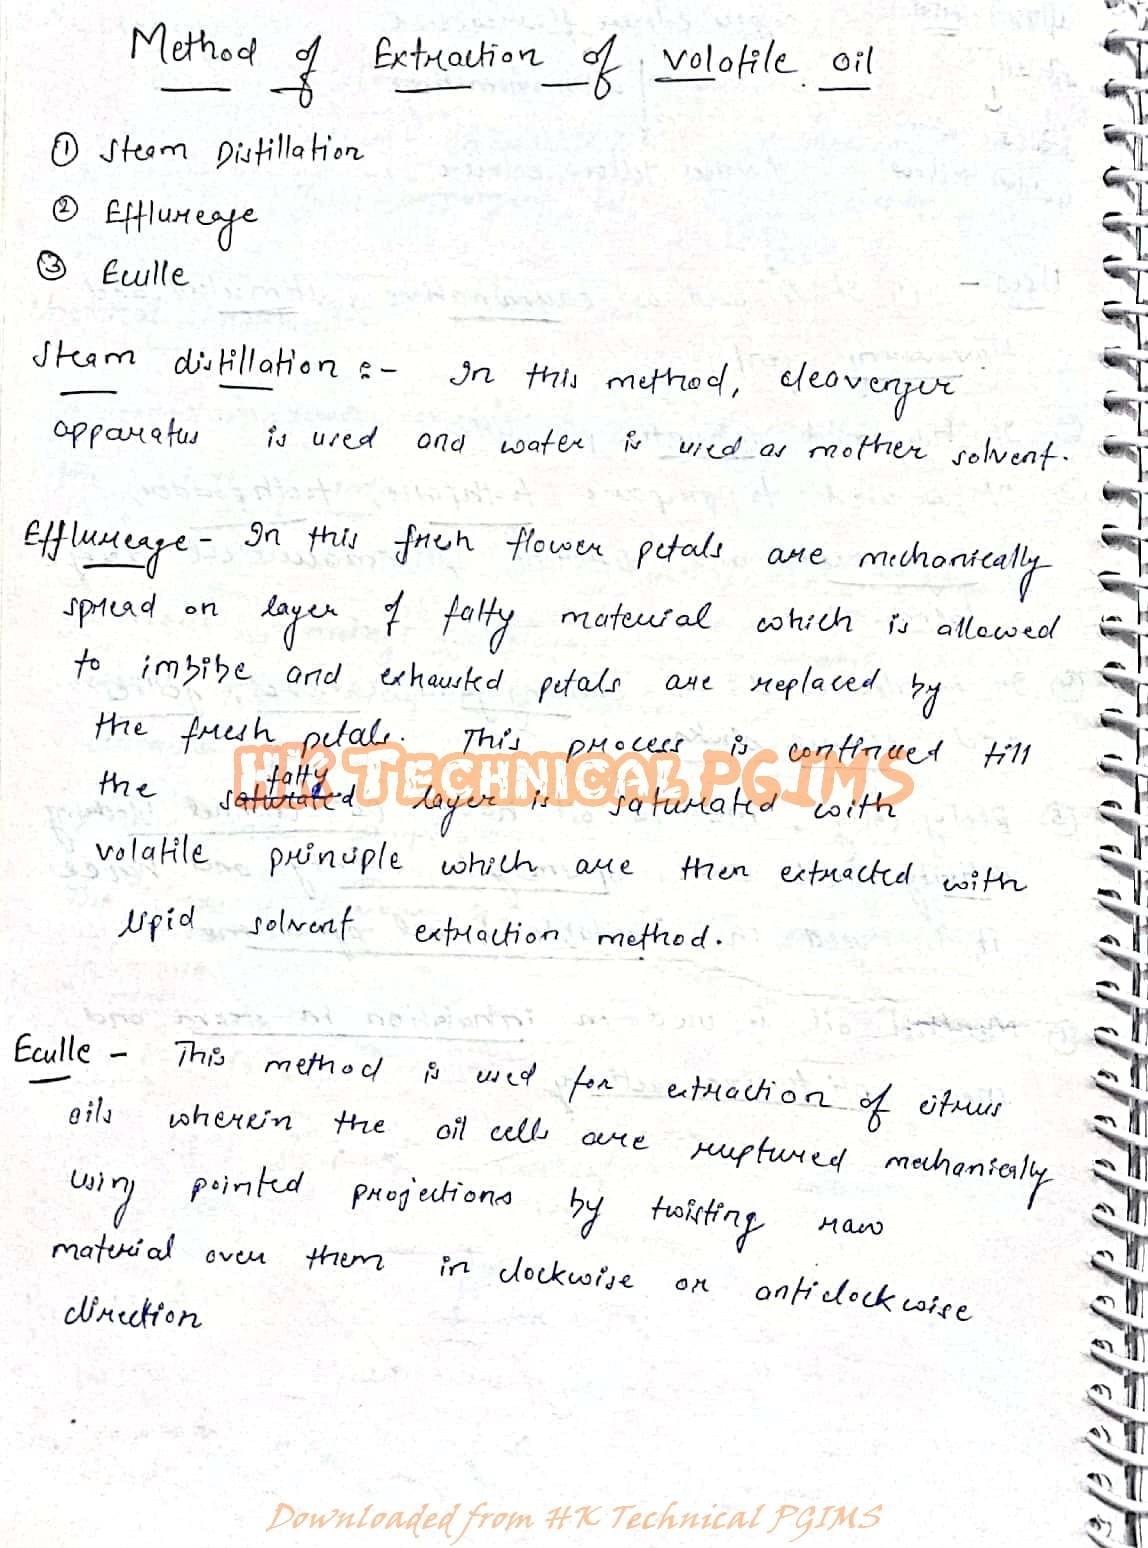 Method of Extraction of volatile oil
① Steam Distillation
② Efflureage
③ Eculle
Steam distillation :- In this method, cleavenger
apparatus is used and water is used as mother solvent.
Efflureage - In this fresh flower petals are mechanically
spread on layer of fatty material which is allowed
to imbibe and exhausted petals are replaced by
the fresh petals. This process is continued till
the fatty layer is saturated with
volatile principle which are then extracted with
lipid solvent extraction method.
Eculle - This method is used for extraction of citrus
oils wherein the oil cells are ruptured mechanically
using pointed projections by twisting raw
material over them in clockwise or anticlockwise
direction
HK TECHNICAL PGIMS
Downloaded from HK Technical PGIMS